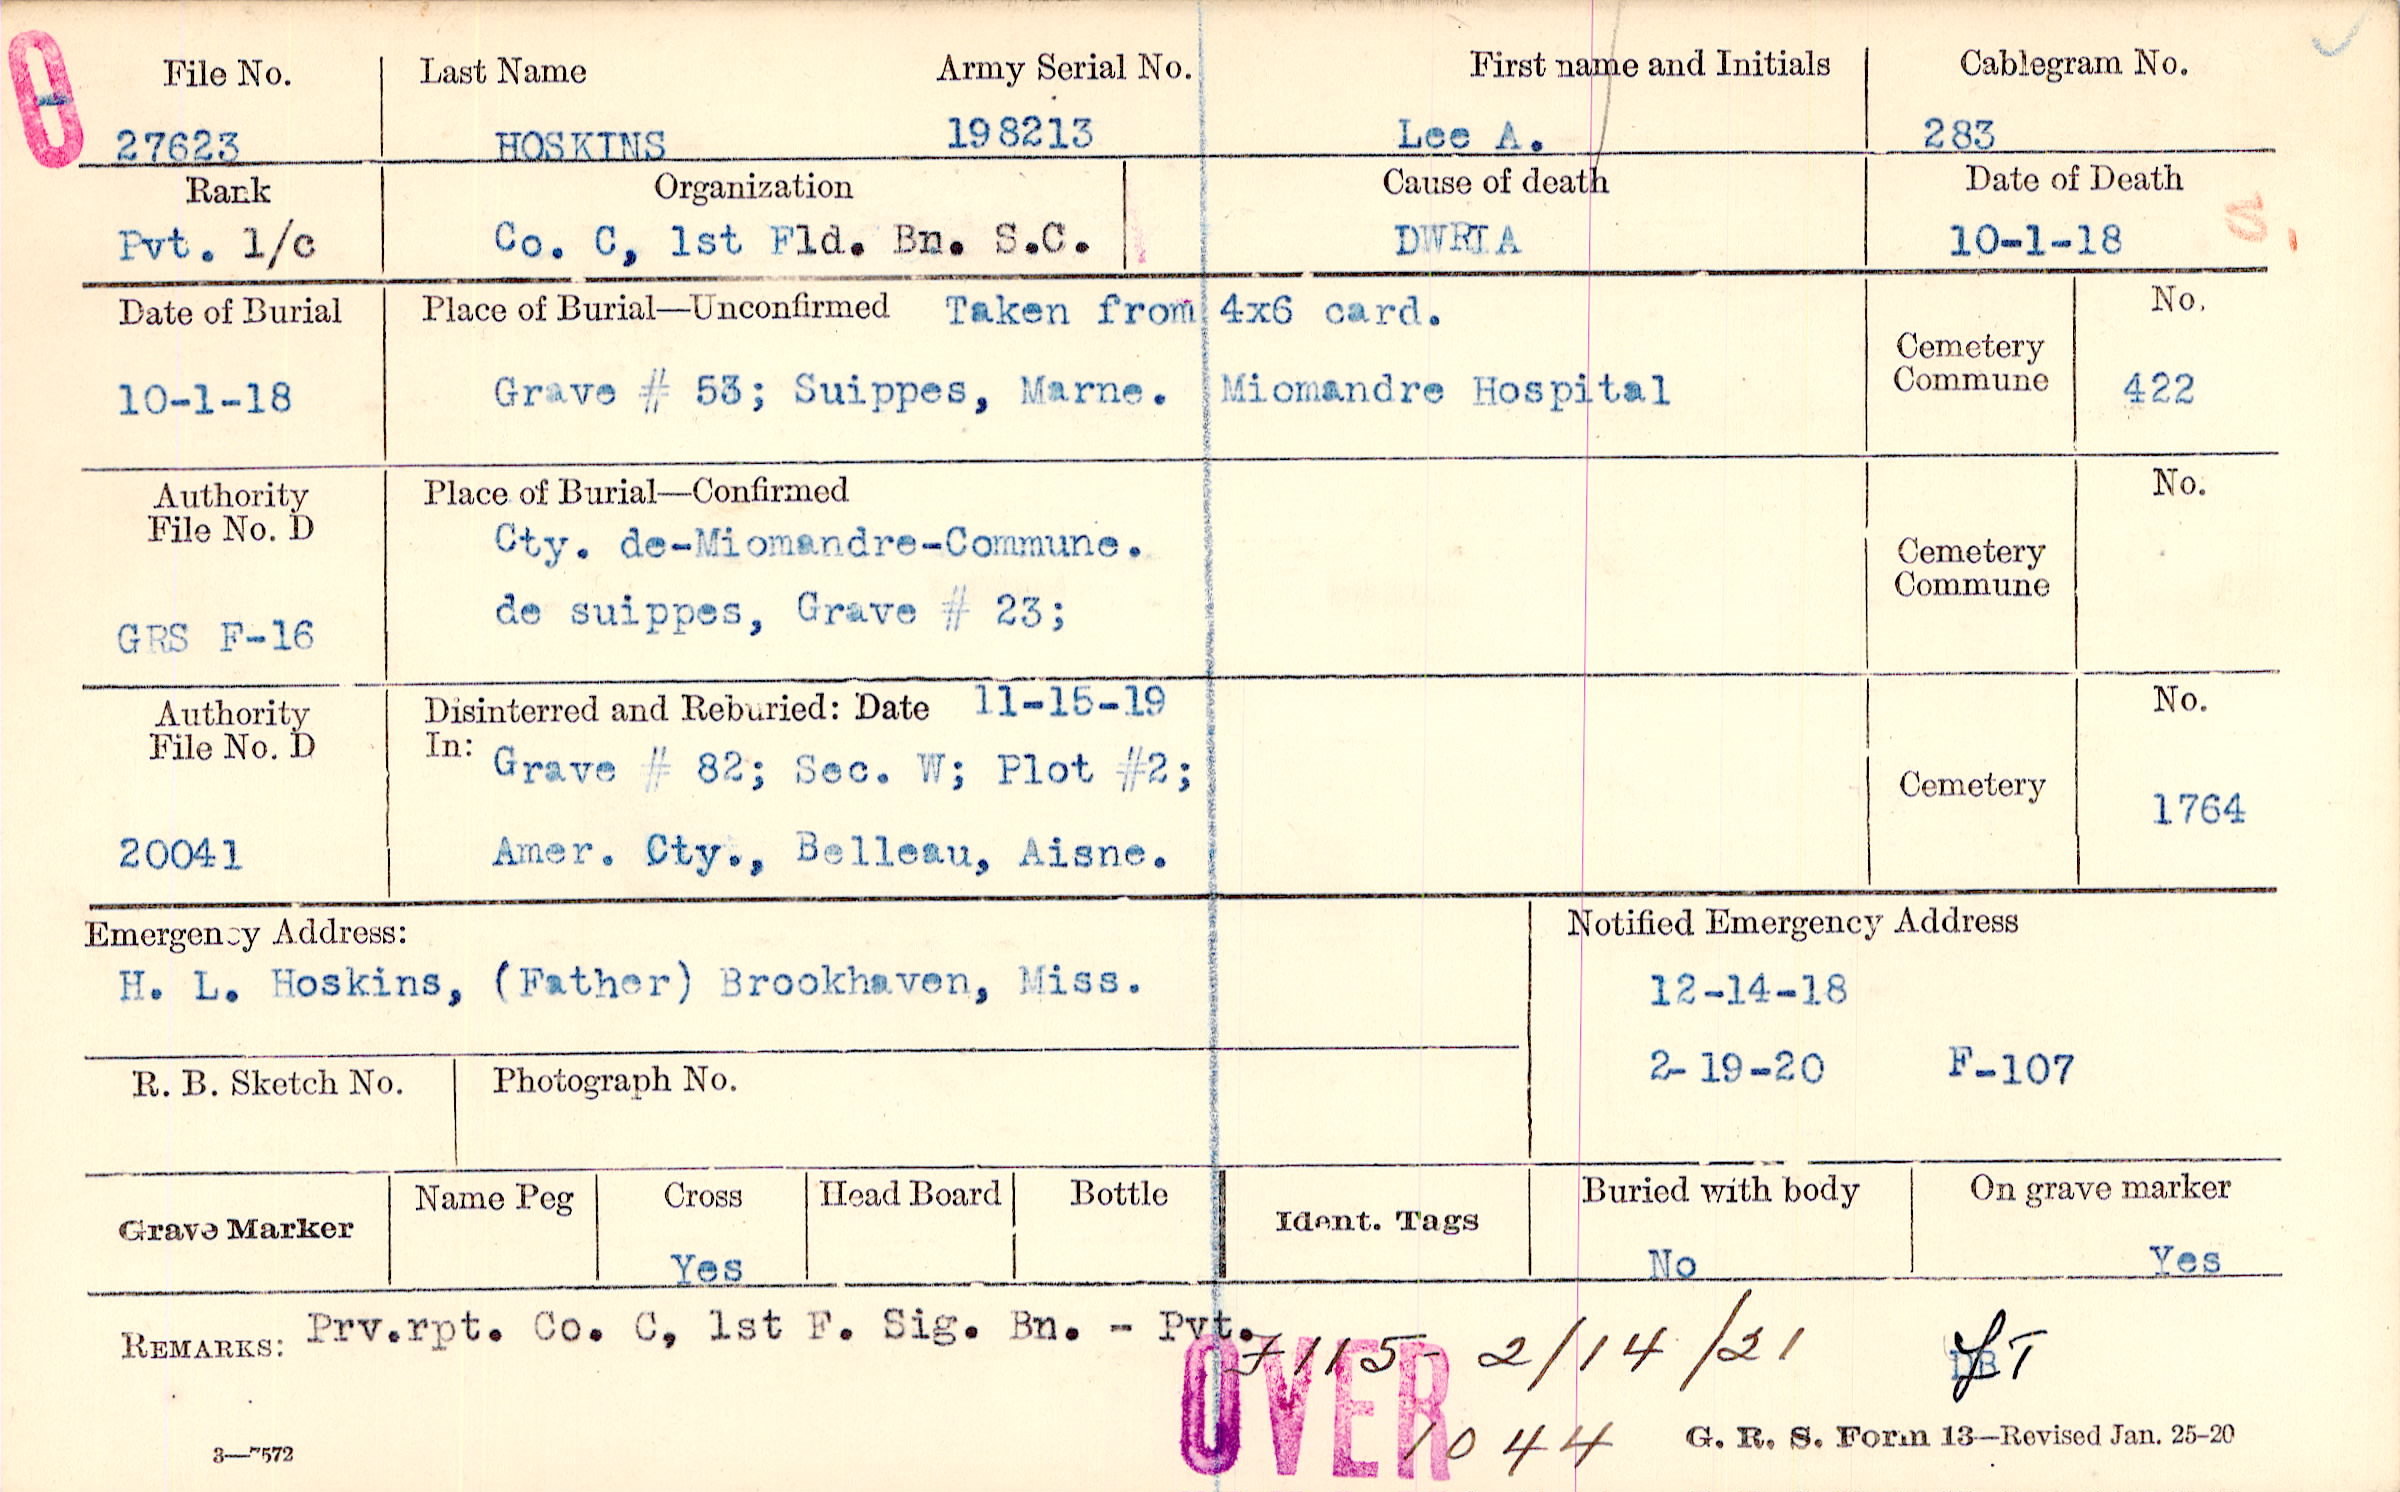 File No. Last Name Army Serial No. First name and Initials Cablegram No.
27623 HOSKINS 198213 Lee A. 283
Rank Organization Cause of death Date of Death
Pvt. 1/c Co. C, 1st Fld. Bn. S.C. DWRIA 10-1-18
S.
Date of Burial Place of Burial—Unconfirmed Taken from 4x6 card. No.
Cemetery
Commune
10-1-18 Grave # 53; Suippes, Marne. Miomandre Hospital 422
Authority Place of Burial—Confirmed No.
File No. D
Cty. de-Miomandre-Commune.
Cemetery
Commune
de suippes, Grave # 23;
GRS F-16
Authority Disinterred and Reburied: Date 11-15-19 No.
File No. D In:
Grave # 82; Sec. W; Plot #2;
Cemetery
1764
20041 Amer. Cty., Belleau, Aisne.
Emergency Address: Notified Emergency Address
H. L. Hoskins, (Father) Brookhaven, Miss. 12-14-18
2-19-20 F-107
R. B. Sketch No. Photograph No.
Grave Marker Name Peg Cross Head Board Bottle Ident. Tags Buried with body On grave marker
Yes No Yes
REMARKS: Prv.rpt. Co. C, 1st F. Sig. Bn. - Pvt.
7115- 2/14/21
OVER
1044
3—7572 G. R. S. Form 13—Revised Jan. 25-20